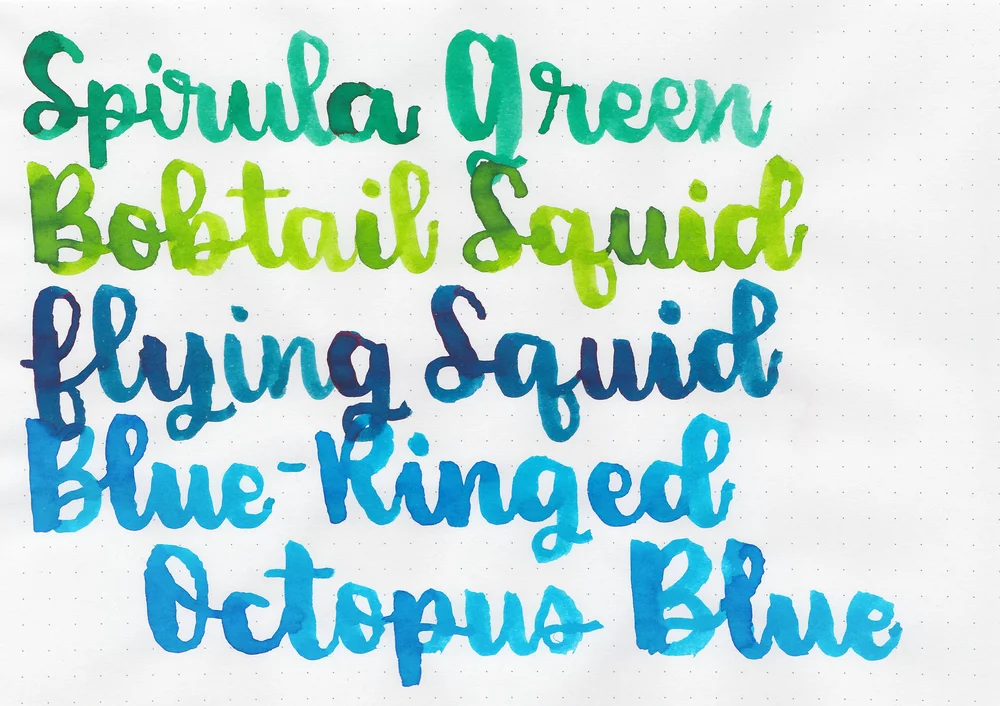 Spirula Green
Bobtail Squid
flying Squid
Blue-Ringed
Octopus Blue